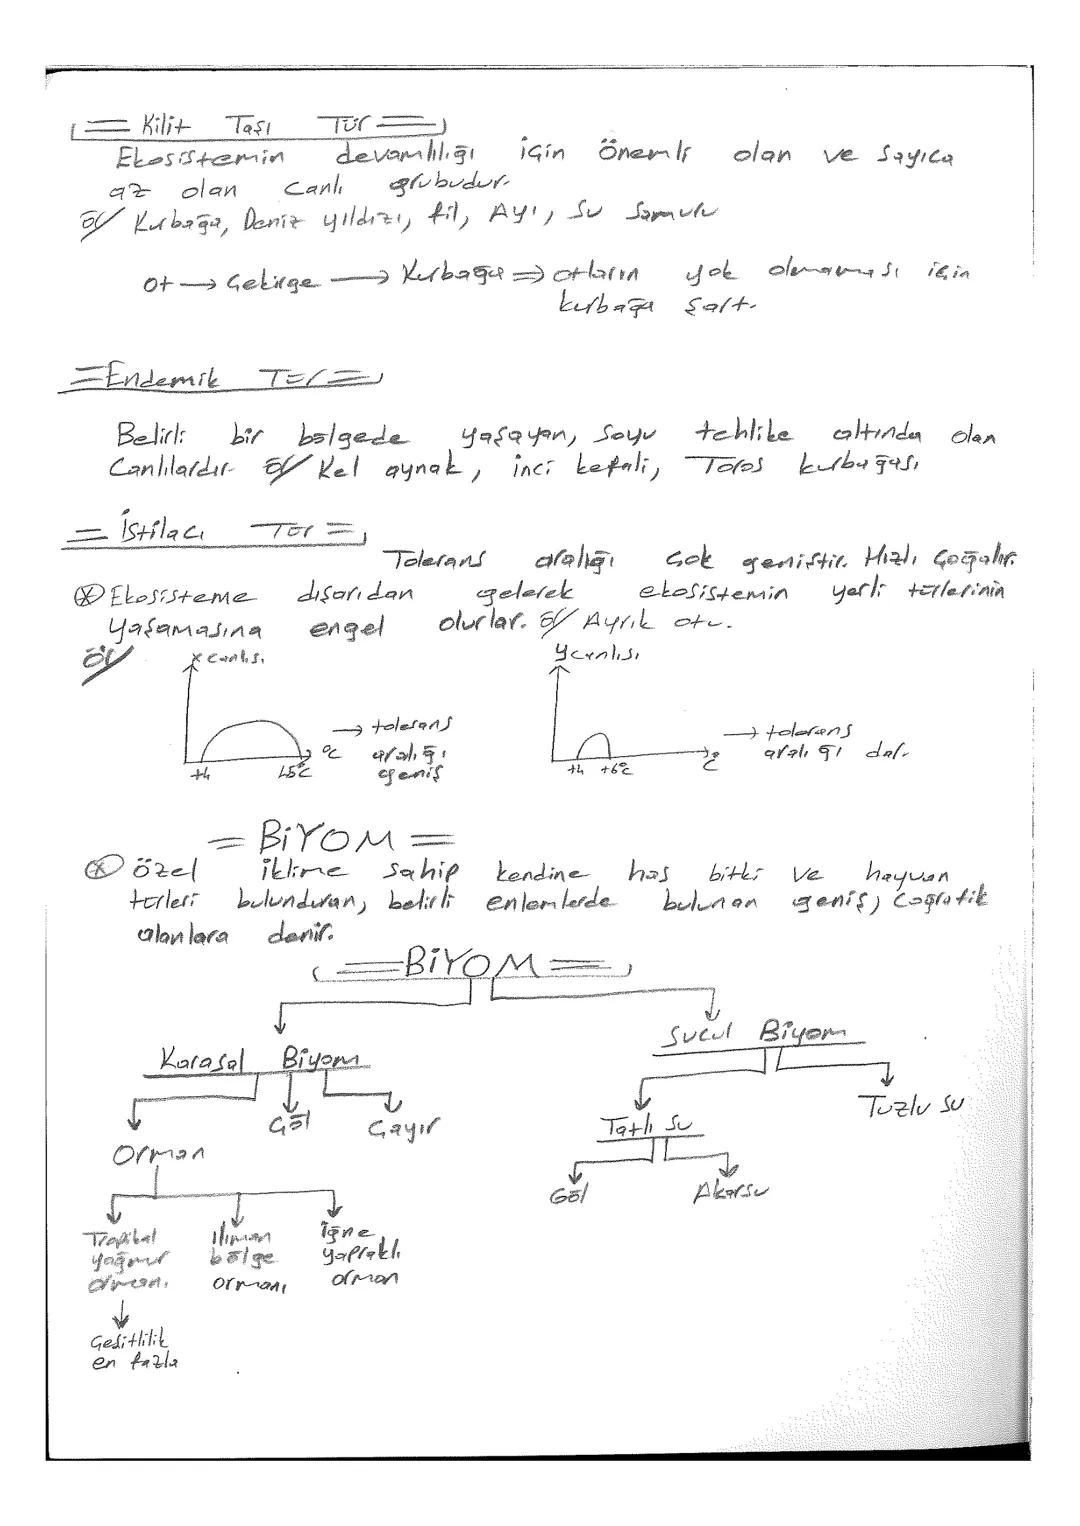 = Kilit Taşı Tür =
Ekosistemin devamlılığı için önemli olan ve sayıca
az olan canlı grubudur.
Ör/ Kurbağa, Deniz yıldızı, fil, Ayı, Su Samuru
Ot → Çekirge → Kurbağa ⇒ otların yok olmaması için
kurbağa şart.
= Endemik Tür =
Belirli bir bölgede yaşayan, soyu tehlike altında olan
Canlılardır. Ör/ Kel aynak, inci kefali, Toros kurbağası
= İstilacı Tür =
Tolerans aralığı çok geniştir. Hızlı Çoğalır.
⊗ Ekosisteme dışarıdan gelerek ekosistemin yerli türlerinin
yaşamasına engel olurlar. Ör/ Ayrık otu.
Ör/ x canlısı Y canlısı
→ tolerans aralığı geniş
→ tolerans aralığı dar.
°C °C
+4 45°C +4 +6°C
= BİYOM =
⊗ Özel iklime sahip kendine has bitki ve hayvan
türleri bulunduran, belirli enlemlerde bulunan geniş, coğrafik
alanlara denir.
= BİYOM =
Karasal Biyom Sucul Biyom
Orman Çöl Çayır Tatlı su Tuzlu su
Göl Akarsu
Tropikal yağmur ormanı
Ilıman bölge ormanı
İğne yapraklı orman
Çeşitlilik
en fazla